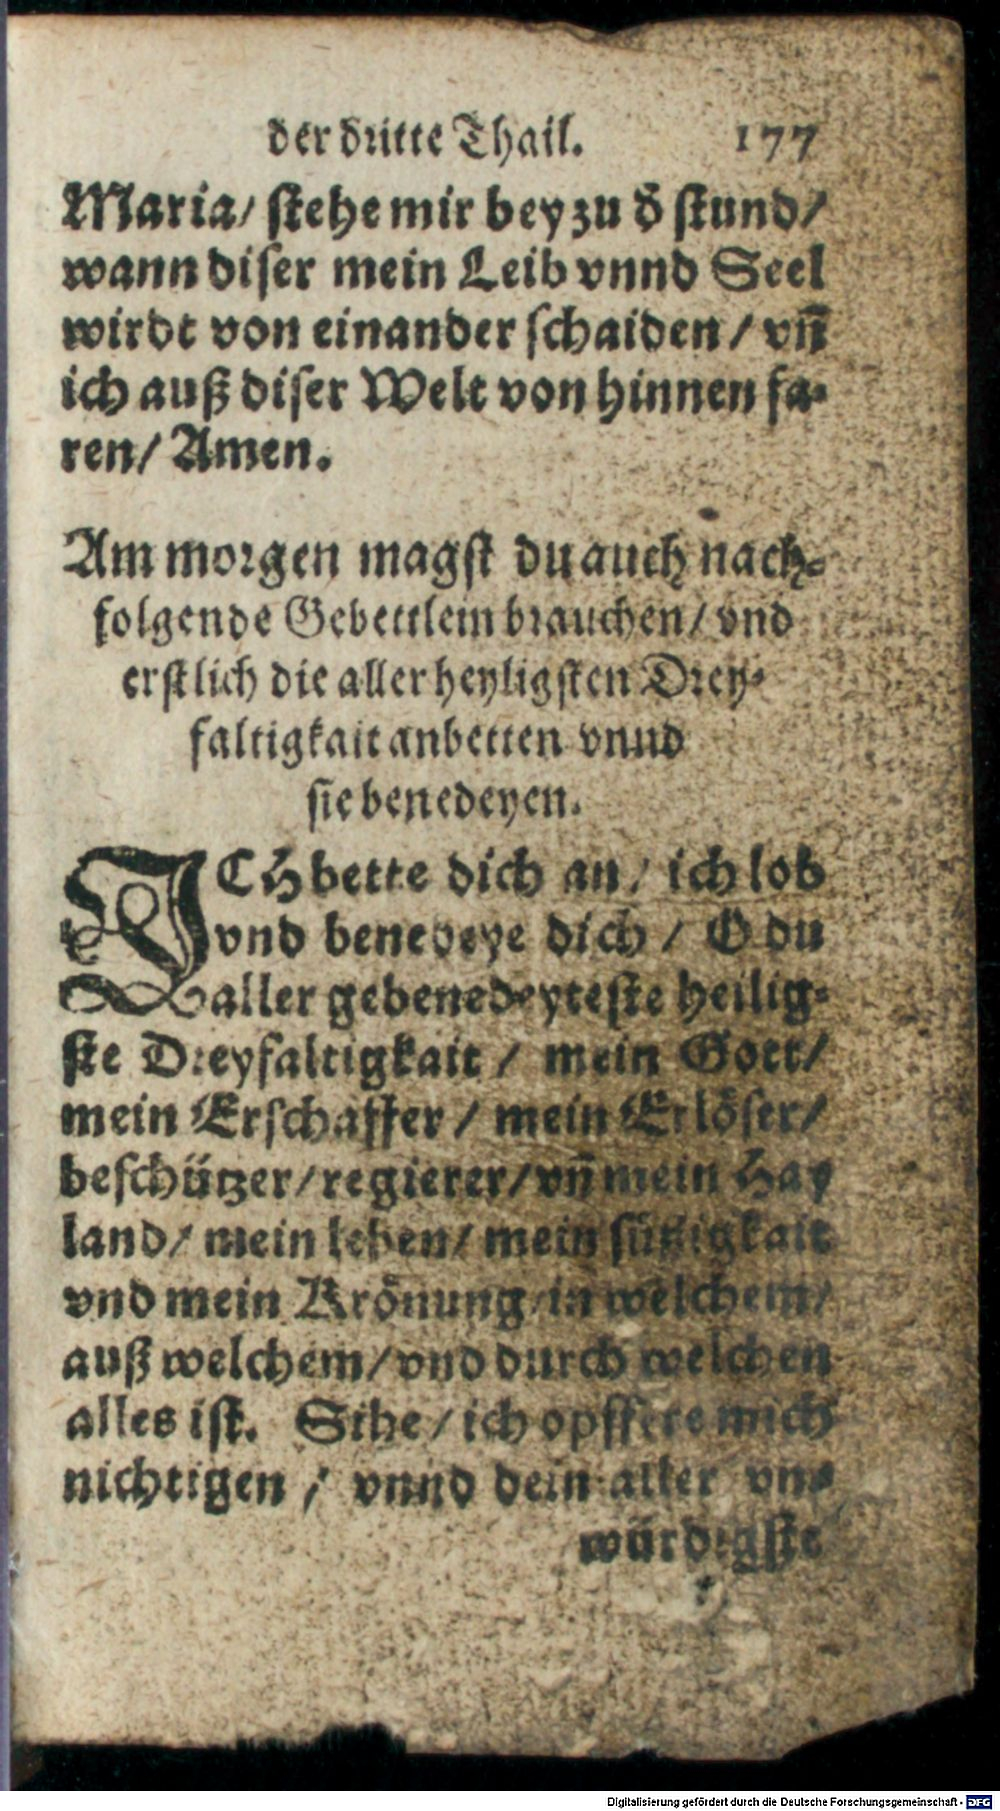 der dritte Thail. 177
Maria/ stehe mir bey zu d̕ stund/
wann diser mein Leib vnnd Seel
wirdt von einander schaiden / vñ
ich auß diser Welt von hinnen fa-
ren/ Amen.
Am morgen magst du auch nach-
folgende Gebettlein brauchen/ vnd
erstlich die aller heyligsten Drey-
faltigkait anbetten vnnd
sie benedeyen.
ICH bette dich an/ ich lob
vnd benedeye dich / O du
aller gebenedeyteste heilig-
ste Dreyfaltigkait / mein Gott/
mein Erschaffer / mein Erlöser/
beschützer/ regierer/ vñ mein Hay
land/ mein leben/ mein süssigkait
vnd mein Krönung/ in welchem/
auß welchem/ vnd durch welchen
alles ist. Sihe / ich opffere mich
nichtigen / vnnd dein aller vn-
würdigste
Digitalisierung gefördert durch die Deutsche Forschungsgemeinschaft - DFG